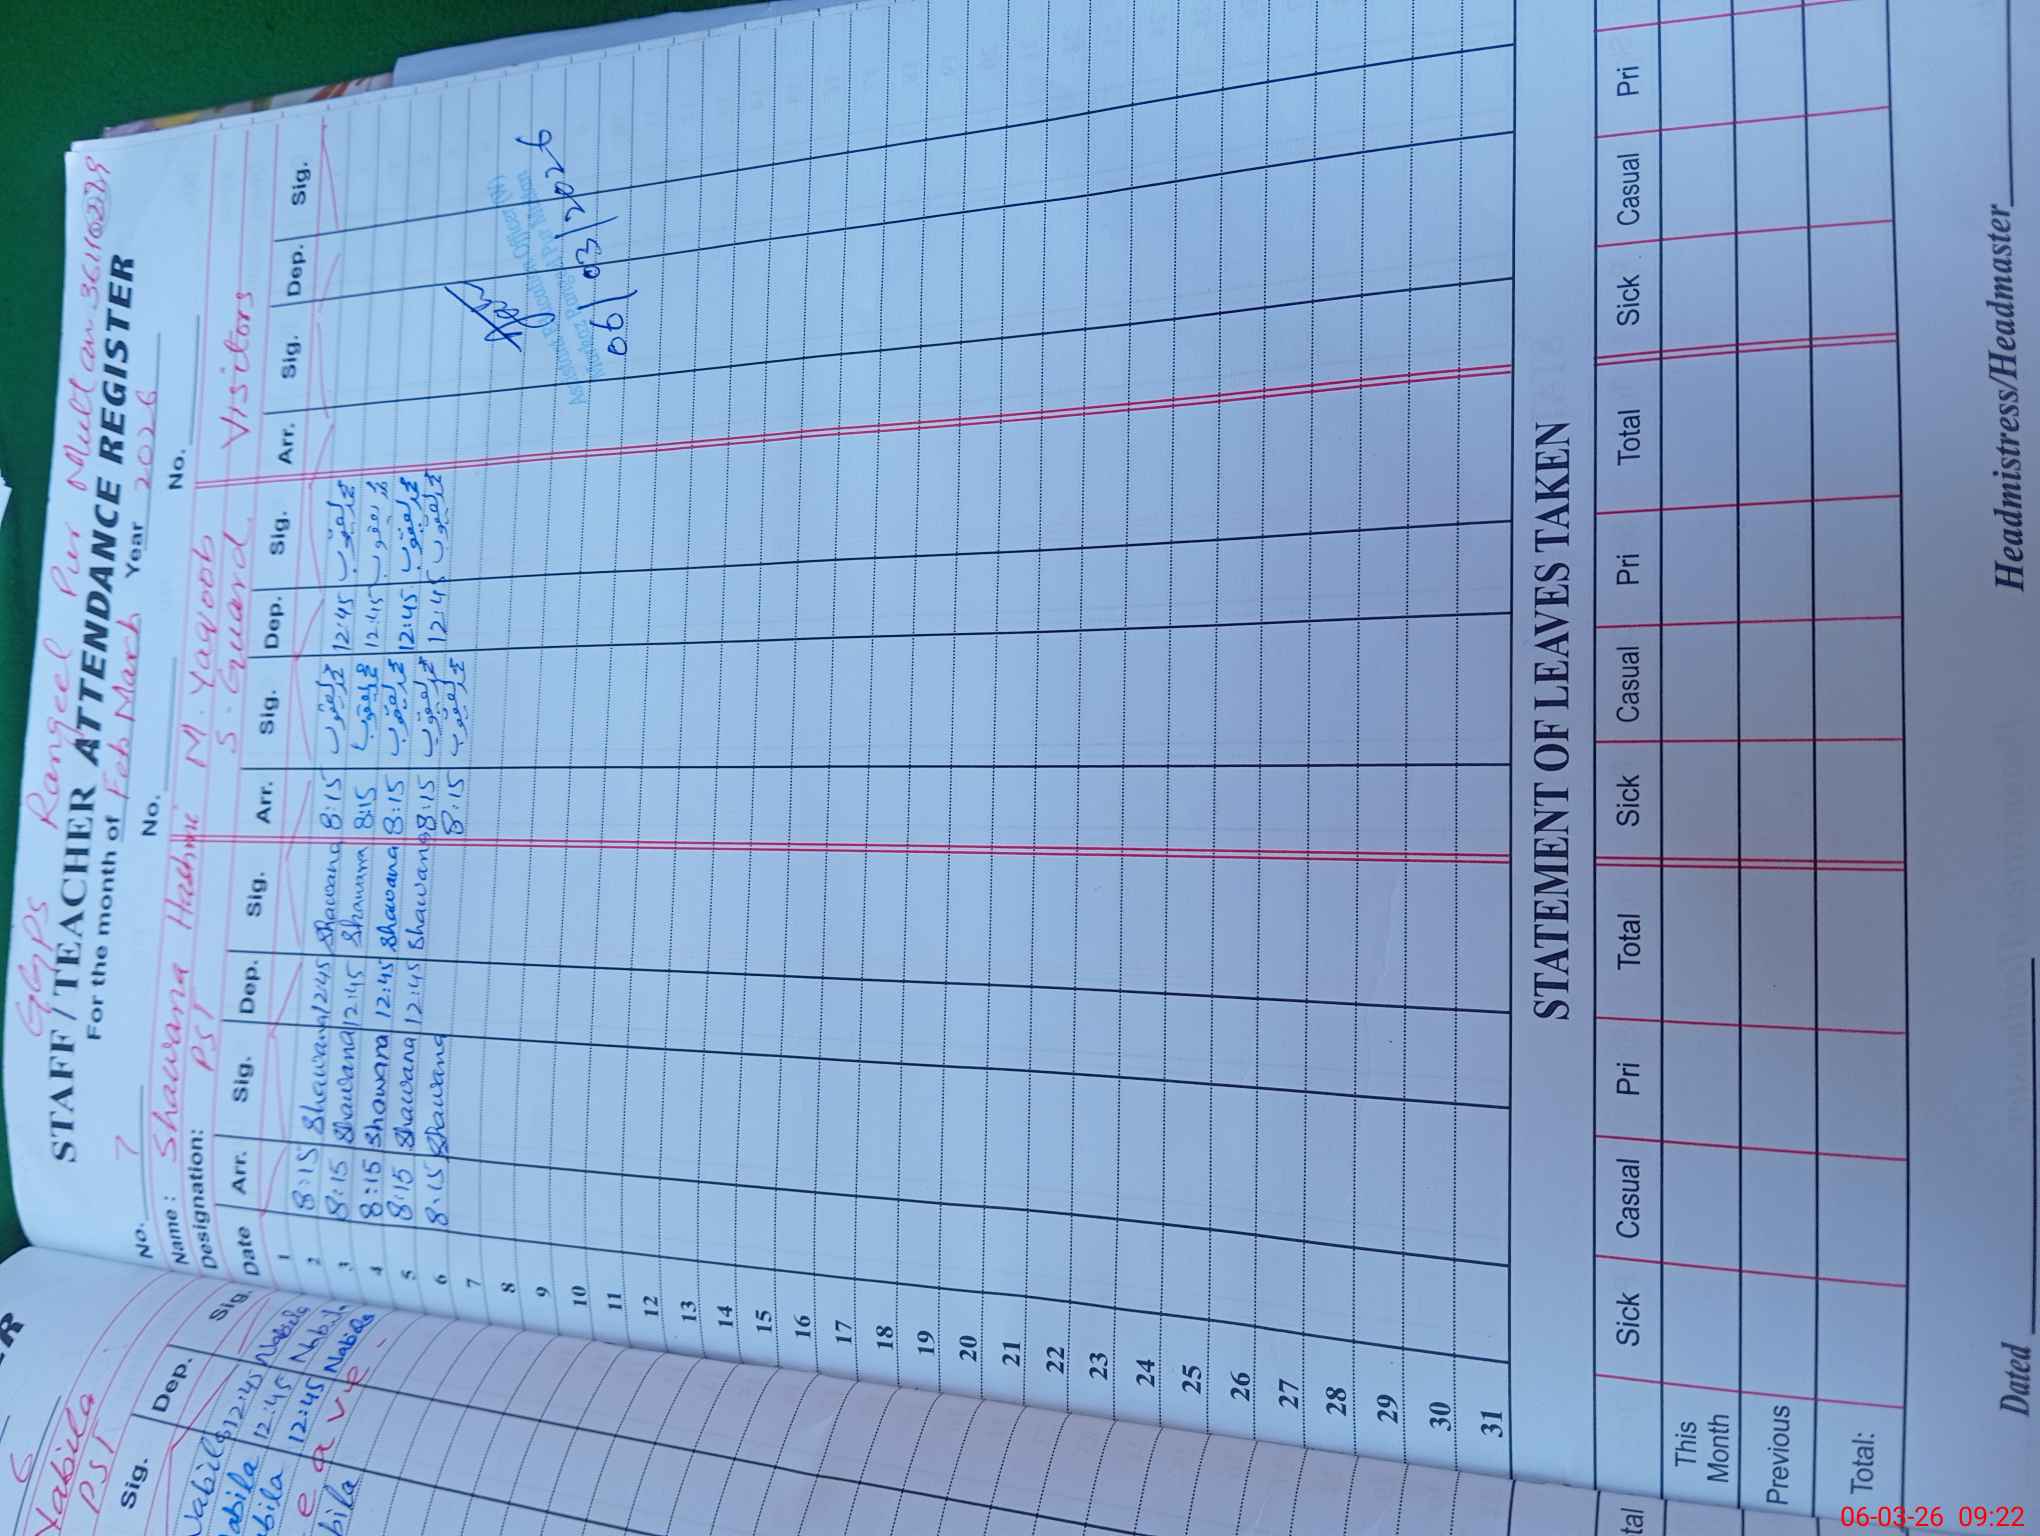 GGPS Rangeel Pur Multan 36110229
STAFF/TEACHER ATTENDANCE REGISTER
For the month of Feb March Year 2026
No. 7 No. No.
Name: Shawana Hashmi M. Yaqoob Visitors
Designation: PST S. Guard
Date Arr. Sig. Dep. Sig. Arr. Sig. Dep. Sig. Arr. Sig. Dep. Sig.
1
2 8:15 Shawana 12:45 Shawana 8:15 محمد یعقوب 12:45 محمد یعقوب
3 8:15 Shawana 12:45 Shawana 8:15 محمد یعقوب 12:45 محمد یعقوب
4 8:15 Shawana 12:45 Shawana 8:15 محمد یعقوب 12:45 محمد یعقوب
5 8:15 Shawana 12:45 Shawana 8:15 محمد یعقوب 12:45 محمد یعقوب
6 8:15 Shawana 8:15 محمد یعقوب
7
8
Assistant Education Officer (W)
9
Markaz Rangeel Pur Multan
10
06/03/2026
11
12
13
14
15
16
17
18
19
20
21
22
23
24
25
26
27
28
29
30
31
STATEMENT OF LEAVES TAKEN
Sick Casual Pri Total Sick Casual Pri Total Sick Casual Pri
This Month
Previous
Total:
Dated Headmistress/Headmaster
6
Nabila
PST
Sig. Dep. Sig.
Nabila 12:45 Nabila
Nabila 12:45 Nabila
Nabila 12:45 Nabila
e a v e
06-03-26 09:22